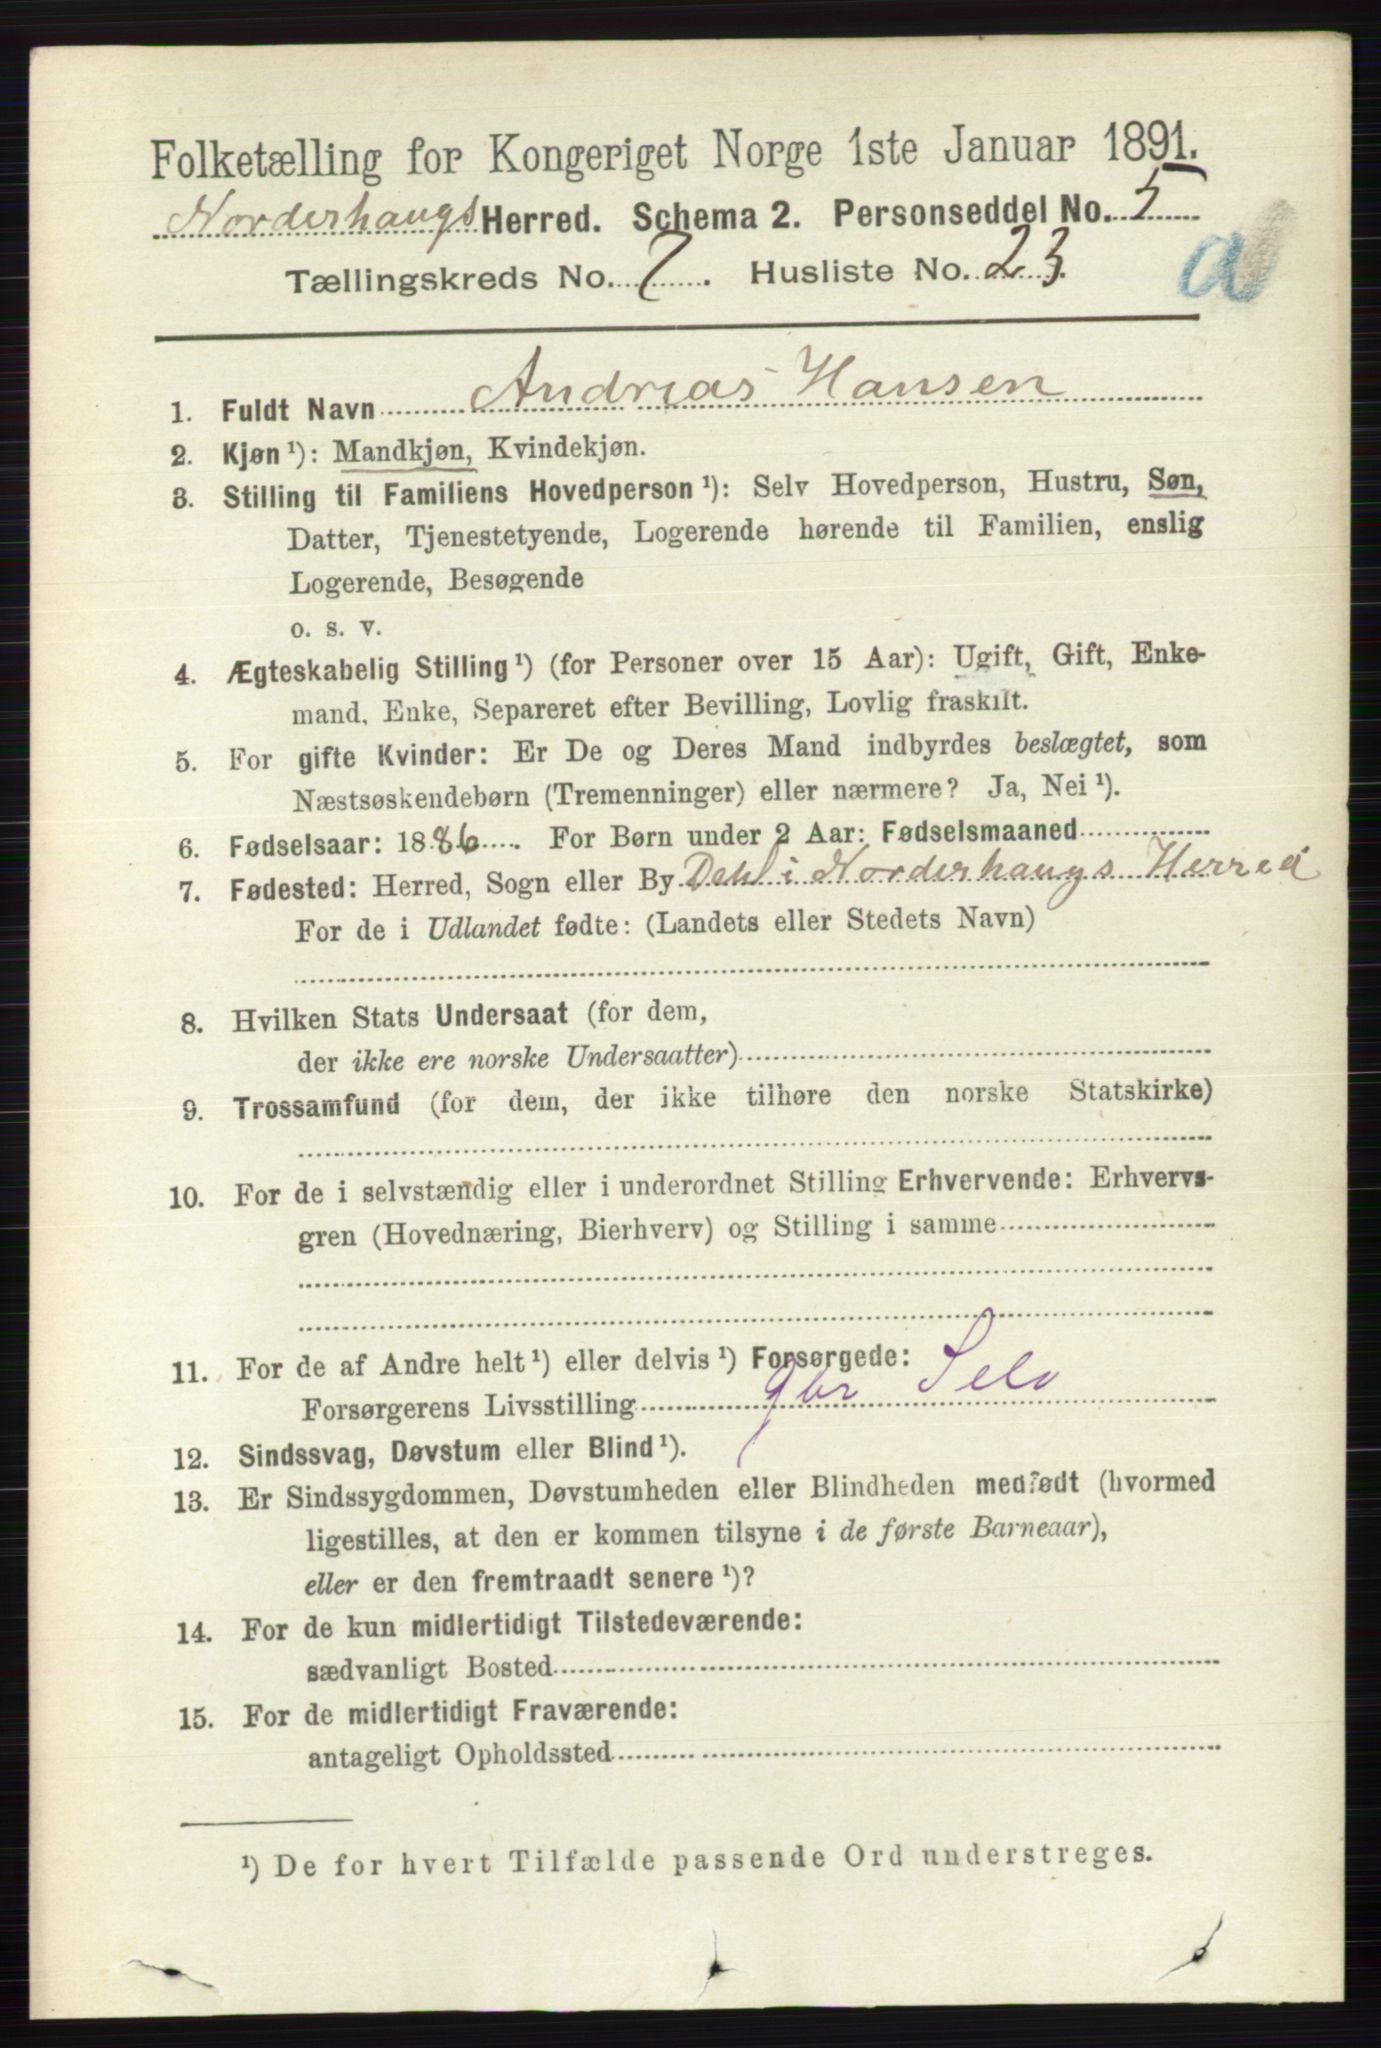 Folketælling for Kongeriget Norge 1ste Januar 1891.
Norderhaugs Herred. Schema 2. Personseddel No. 5
Tællingskreds No. 7. Husliste No. 23.
a
1. Fuldt Navn Andreas Hansen
2. Kjøn ¹): Mandkjøn, Kvindekjøn.
3. Stilling til Familiens Hovedperson ¹): Selv Hovedperson, Hustru, Søn,
Datter, Tjenestetyende, Logerende hørende til Familien, enslig
Logerende, Besøgende
o. s. v.
4. Ægteskabelig Stilling ¹) (for Personer over 15 Aar): Ugift, Gift, Enke-
mand, Enke, Separeret efter Bevilling, Lovlig fraskilt.
5. For gifte Kvinder: Er De og Deres Mand indbyrdes beslægtet, som
Næstsøskendebørn (Tremenninger) eller nærmere? Ja, Nei ¹).
6. Fødselsaar: 1886. For Børn under 2 Aar: Fødselsmaaned
7. Fødested: Herred, Sogn eller By i Norderhaugs Herred
For de i Udlandet fødte: (Landets eller Stedets Navn)
8. Hvilken Stats Undersaat (for dem,
der ikke ere norske Undersaatter)
9. Trossamfund (for dem, der ikke tilhøre den norske Statskirke)
10. For de i selvstændig eller i underordnet Stilling Erhvervende: Erhvervs-
gren (Hovednæring, Bierhverv) og Stilling i samme
11. For de af Andre helt ¹) eller delvis ¹) Forsørgede:
Forsørgerens Livsstilling gbr Selv
12. Sindssvag, Døvstum eller Blind ¹).
13. Er Sindssygdommen, Døvstumheden eller Blindheden medfødt (hvormed
ligestilles, at den er kommen tilsyne i de første Barneaar),
eller er den fremtraadt senere ¹)?
14. For de kun midlertidigt Tilstedeværende:
sædvanligt Bosted
15. For de midlertidigt Fraværende:
antageligt Opholdssted
¹) De for hvert Tilfælde passende Ord understreges.